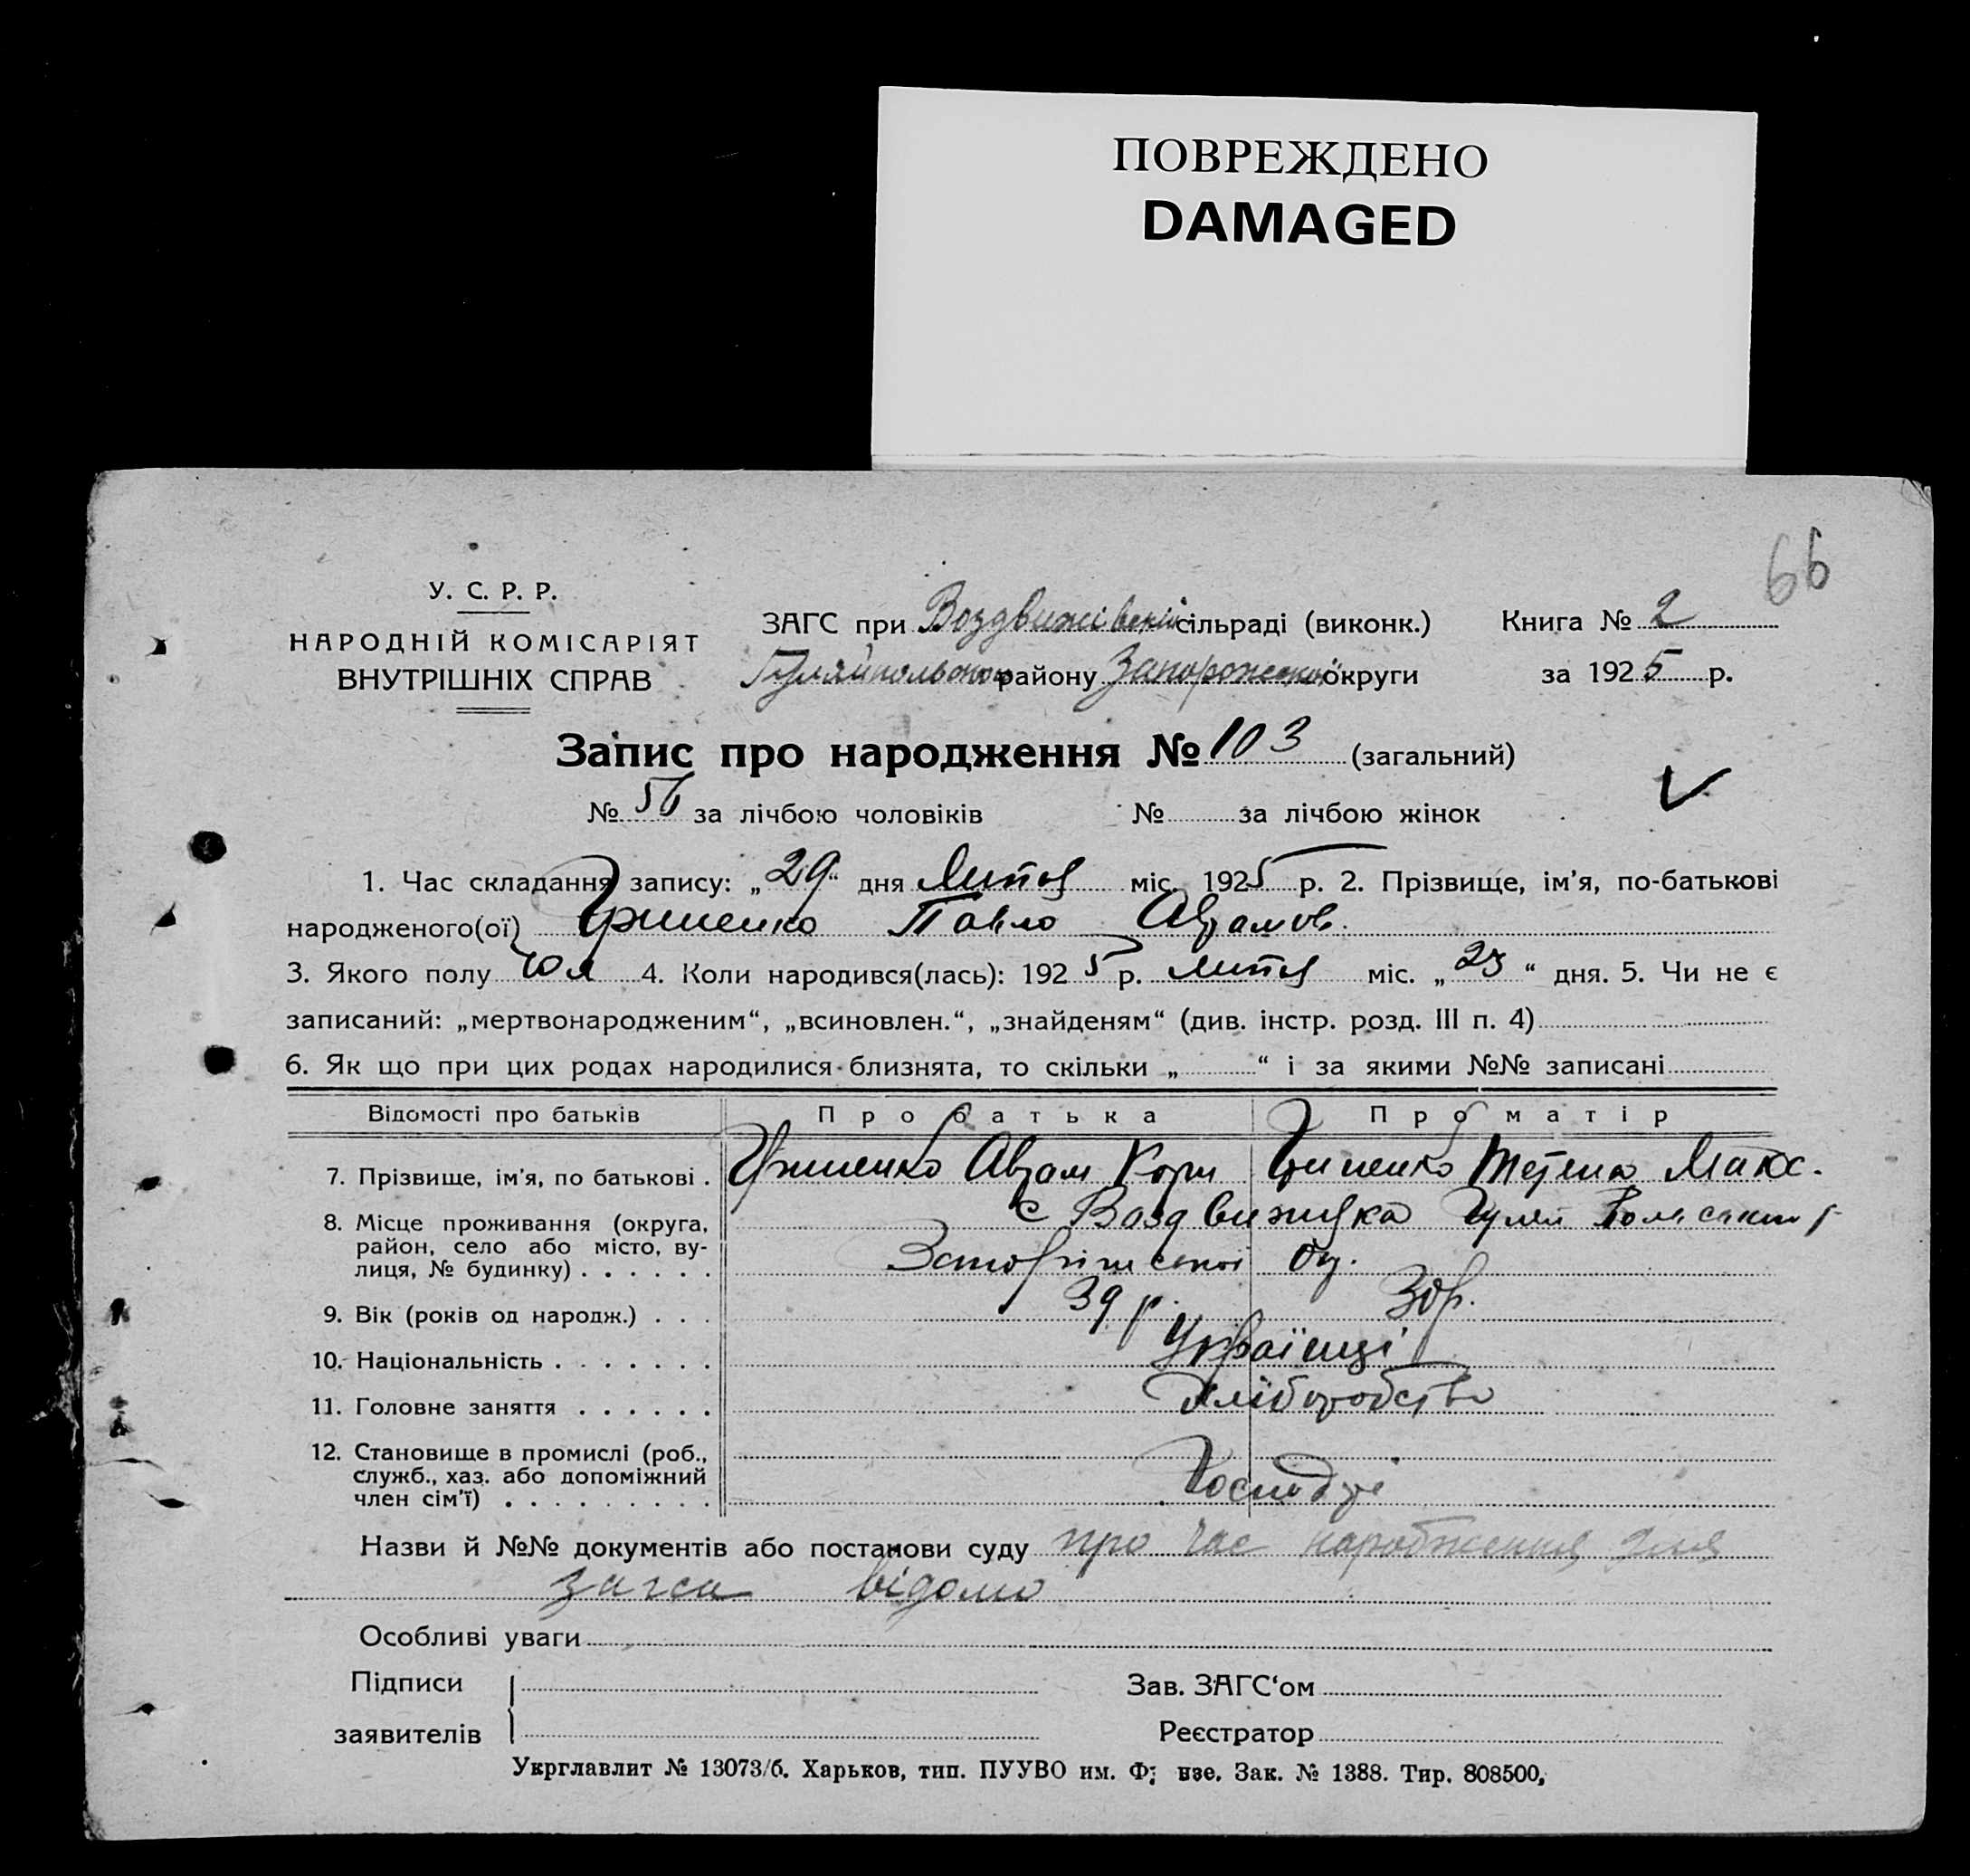 ПОВРЕЖДЕНО
DAMAGED
66
У. С. Р. Р.
НАРОДНІЙ КОМІСАРІЯТ
ВНУТРІШНІХ СПРАВ
ЗАГС при Воздвижівській сільраді (виконк.)
Книга № 2
Гуляйпольського району Запорожської округи
за 1925 р.
Запис про народження № 103 (загальний)
№ 56 за лічбою чоловіків № за лічбою жінок
1. Час складання запису: „29“ дня Липня міс. 1925 р. 2. Прізвище, ім’я, по-батькові
народженого(ої) Гриненко Павло Аврамов.
3. Якого полу чол 4. Коли народився(лась): 1925 р. липня міс. „23“ дня. 5. Чи не є
записаний: „мертвонародженим“, „всиновлен.“, „знайденям“ (див. інстр. розд. III п. 4)
6. Як що при цих родах народилися близнята, то скільки „ “ і за якими №№ записані
Відомості про батьків Про батька Про матір
7. Прізвище, ім’я, по батькові . Гриненко Аврам Корн Гриненко Тетяна Макс.
8. Місце проживання (округа, район, село або місто, вулиця, № будинку) с Воздвижівка Гуляй
Запоріжської ок.
9. Вік (років од народж.) . . . 39 р. 30р.
10. Національність . . . . . . . Українці
11. Головне заняття . . . . . . Хліборобство
12. Становище в промислі (роб.,
служб., хаз. або допоміжний
член сім’ї) . . . . . . . . . Господарі
Назви й №№ документів або постанови суду про час народження для
загса відомо
Особливі уваги
Підписи
заявителів
Зав. ЗАГС‘ом
Реєстратор
Укрглавлит № 13073/б. Харьков, тип. ПУУВО им. Ф; нзе. Зак. № 1388. Тир. 808500,